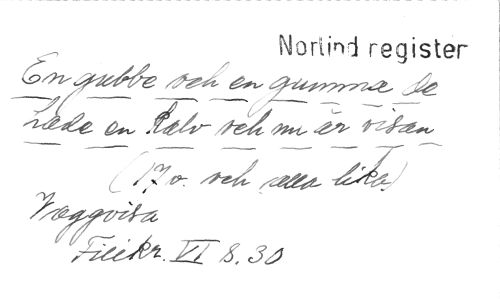 Nortind register
En gubbe och en gumma de
hade en kalv och nu är visan
(17 v. och alla lika)
Vaggvisa
Filikr. VI S. 30